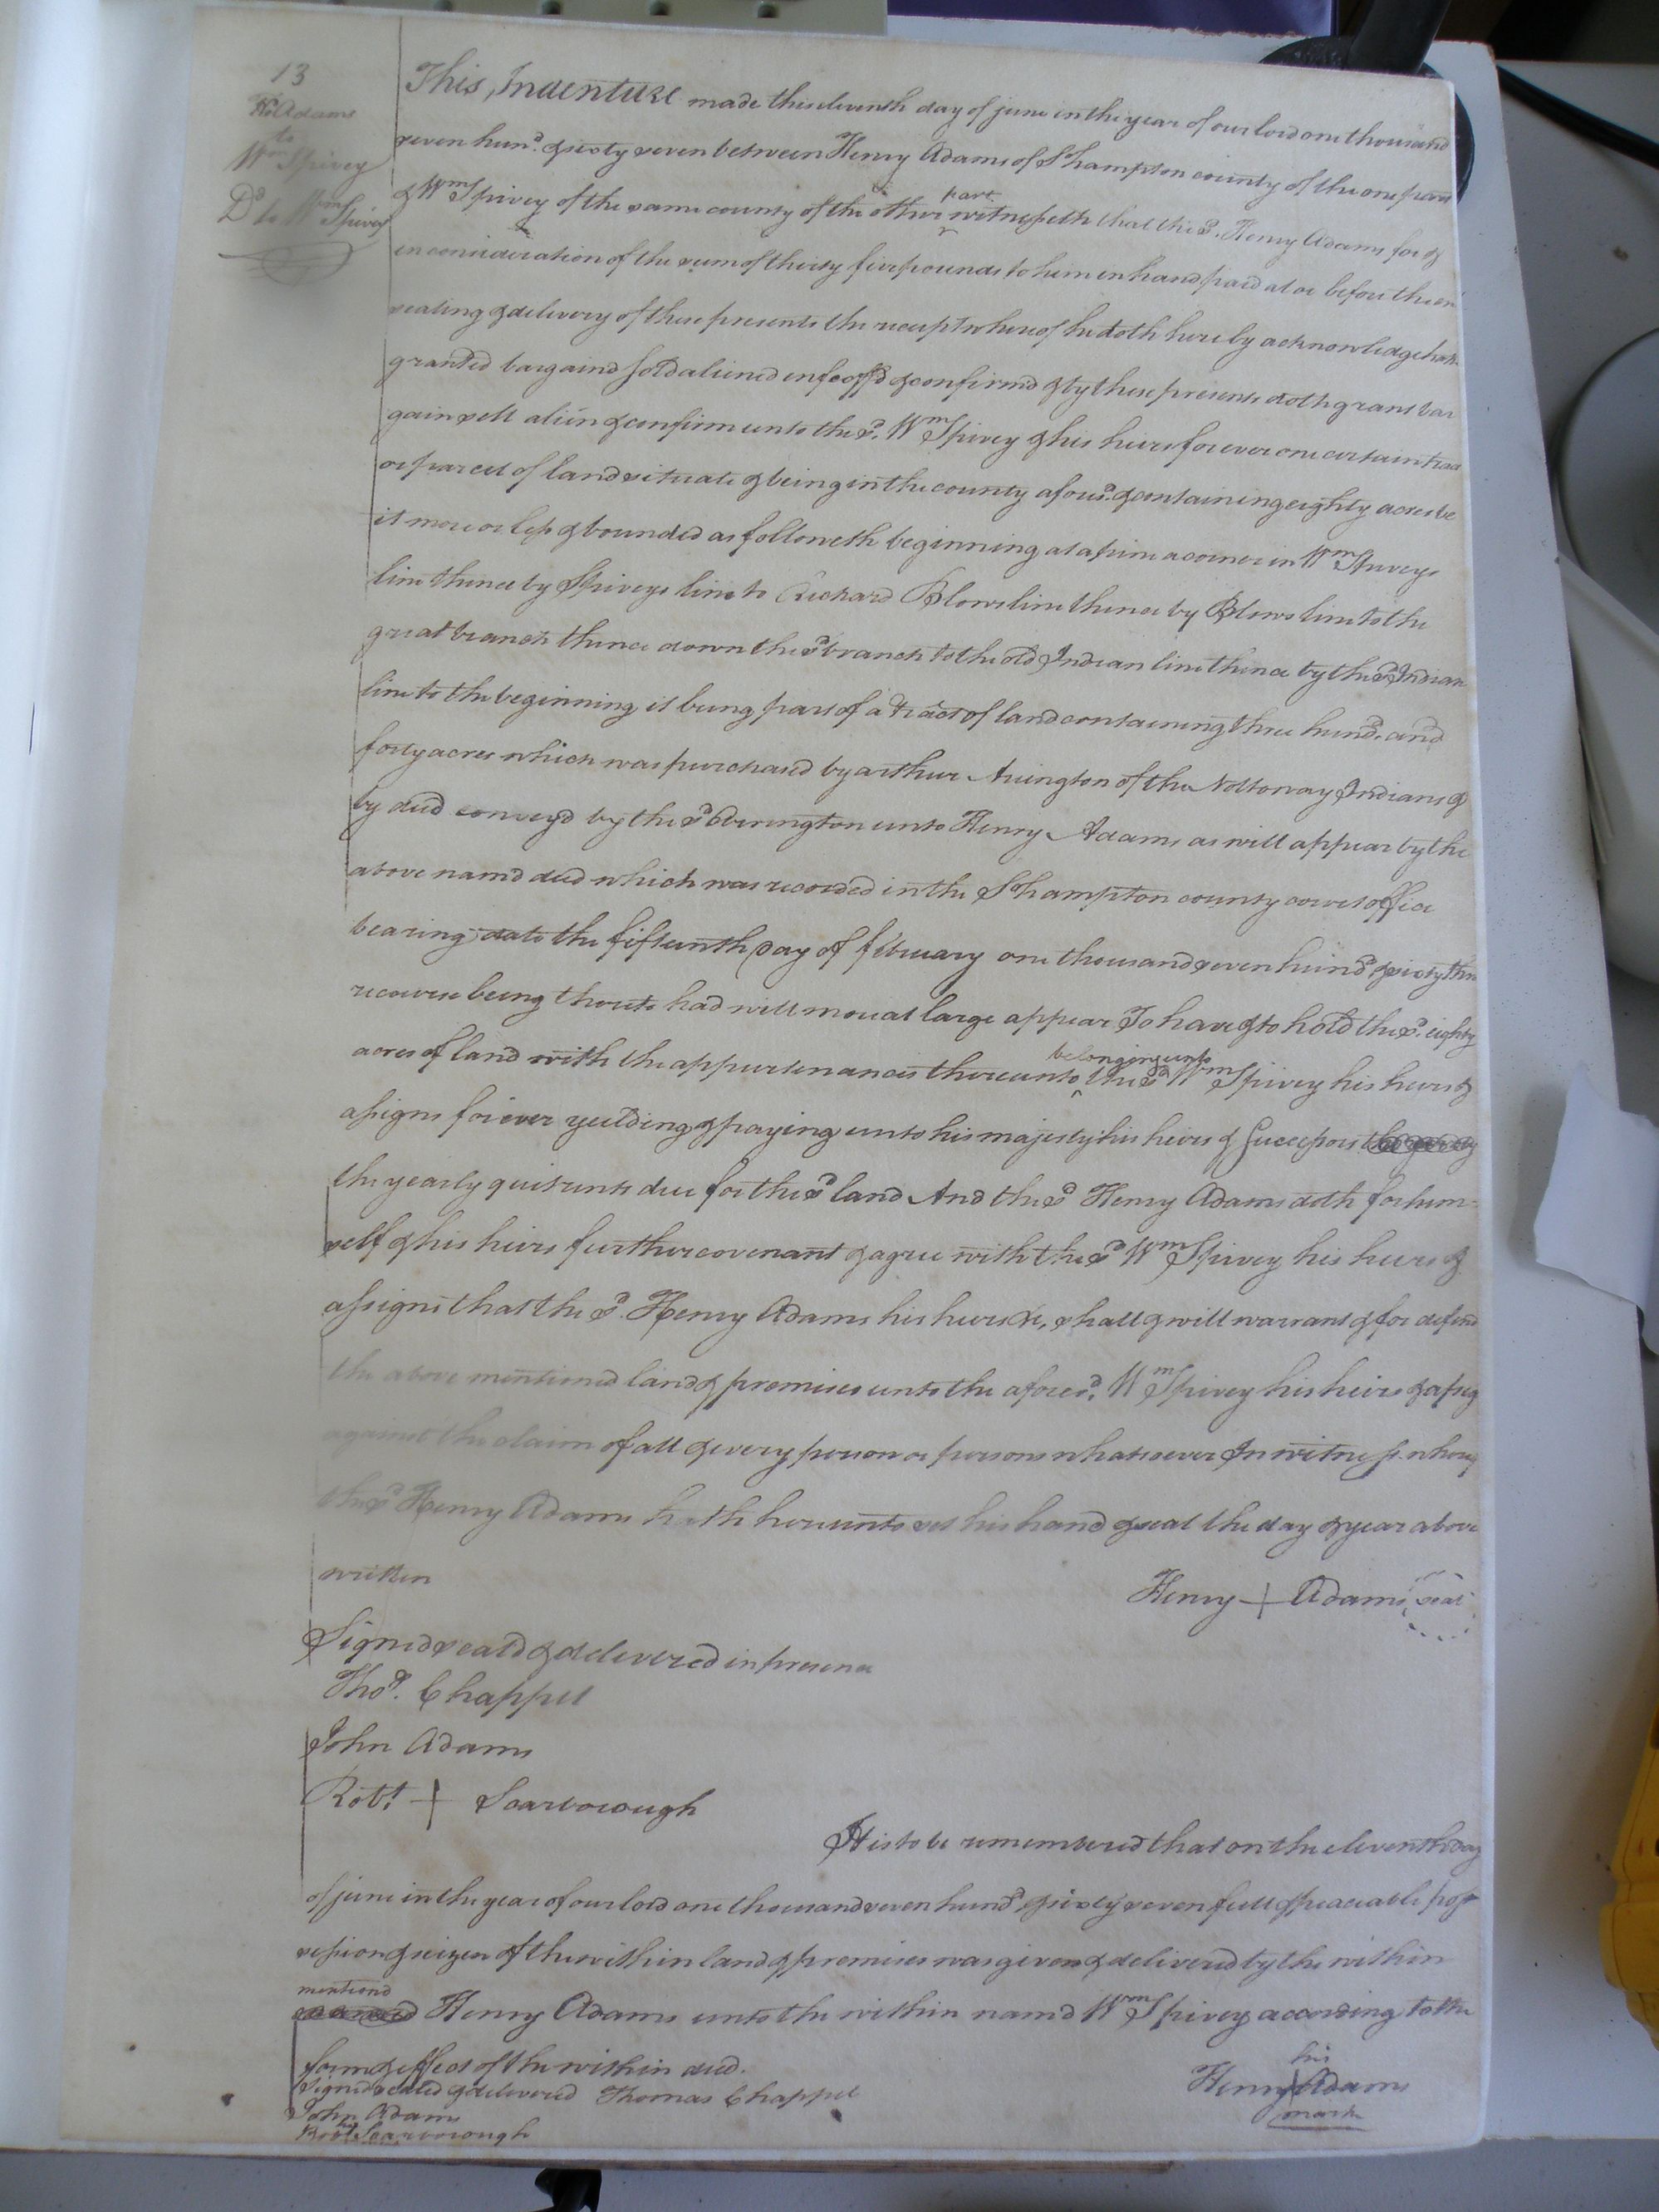 13
Hy Adams
to
Wm Spivey
Dd to Wm Spivey
This Indenture made this eleventh day of june in the year of our lord one thousand
seven hund. & sixty seven between Henry Adams of S'hampton county of the one part
& Wm Spivey of the same county of the other part witnesseth that the sd. Henry Adams for &
in consideration of the sum of thirty five pounds to him in hand paid at or before the en
sealing & delivery of these presents the receipt whereof he doth hereby acknowledge hath
granted bargaind sold aliened enfeoff'd & confirmd & by these presents doth grant bar
gain sell alien & confirm unto the sd. Wm Spivey & his heirs for ever one certain tract
or parcel of land situate & being in the county aforesd. & containing eighty acres be
it more or less & bounded as followeth beginning at a pine a corner in Wm Spiveys
line thence by Spiveys line to Richard Blows line thence by Blows line to the
great branch thence down the sd branch to the old Indian line thence by the sd Indian
line to the beginning it being part of a tract of land containing three hund. and
forty acres which was purchased by arthur Arington of the Nottoway Indians &
by deed convey'd by the sd Averington unto Henry Adams as will appear by the
above namd deed which was recorded in the S'hampton county court office
bearing date the fifteenth Day of february one thousand seven hund & sixty three
recourse being thereto had will more at large appear To have & to hold the sd. eighty
acres of land with the appurtenances thereunto belonging unto the sd Wm Spivey his heirs &
assigns for ever yeilding & paying unto his majesty his heirs & Successors
the yearly quitrents due for the sd land And the sd Henry Adams doth for him=
self & his heirs further covenant & agree with the sd Wm Spivey his heirs &
assigns that the sd. Henry Adams his heirs &c, shall & will warrant & for defend
the above mentioned land & premises unto the aforesd. Wm Spivey his heirs & assig
against the claim of all & every person or persons whatsoever In witness whereof
the sd Henry Adams hath hereunto set his hand & seal the day & year above
written
Henry + Adams seal
Signed seald & delivered in presence
Thos. Chappel
John Adams
Robt + Scarborough
It is to be remembered that on the eleventh day
of june in the year of our lord one thousand seven hund & sixty seven full & peaceable pos
session & seizen of the within land & premises was given & delivered by the within
mentiond Henry Adams unto the within namd Wm Spivey according to the
form & effect of the within deed.
Signed sealed & delivered Thomas Chappel
John Adams
Robt Scarborough
his
Henry + Adams
mark